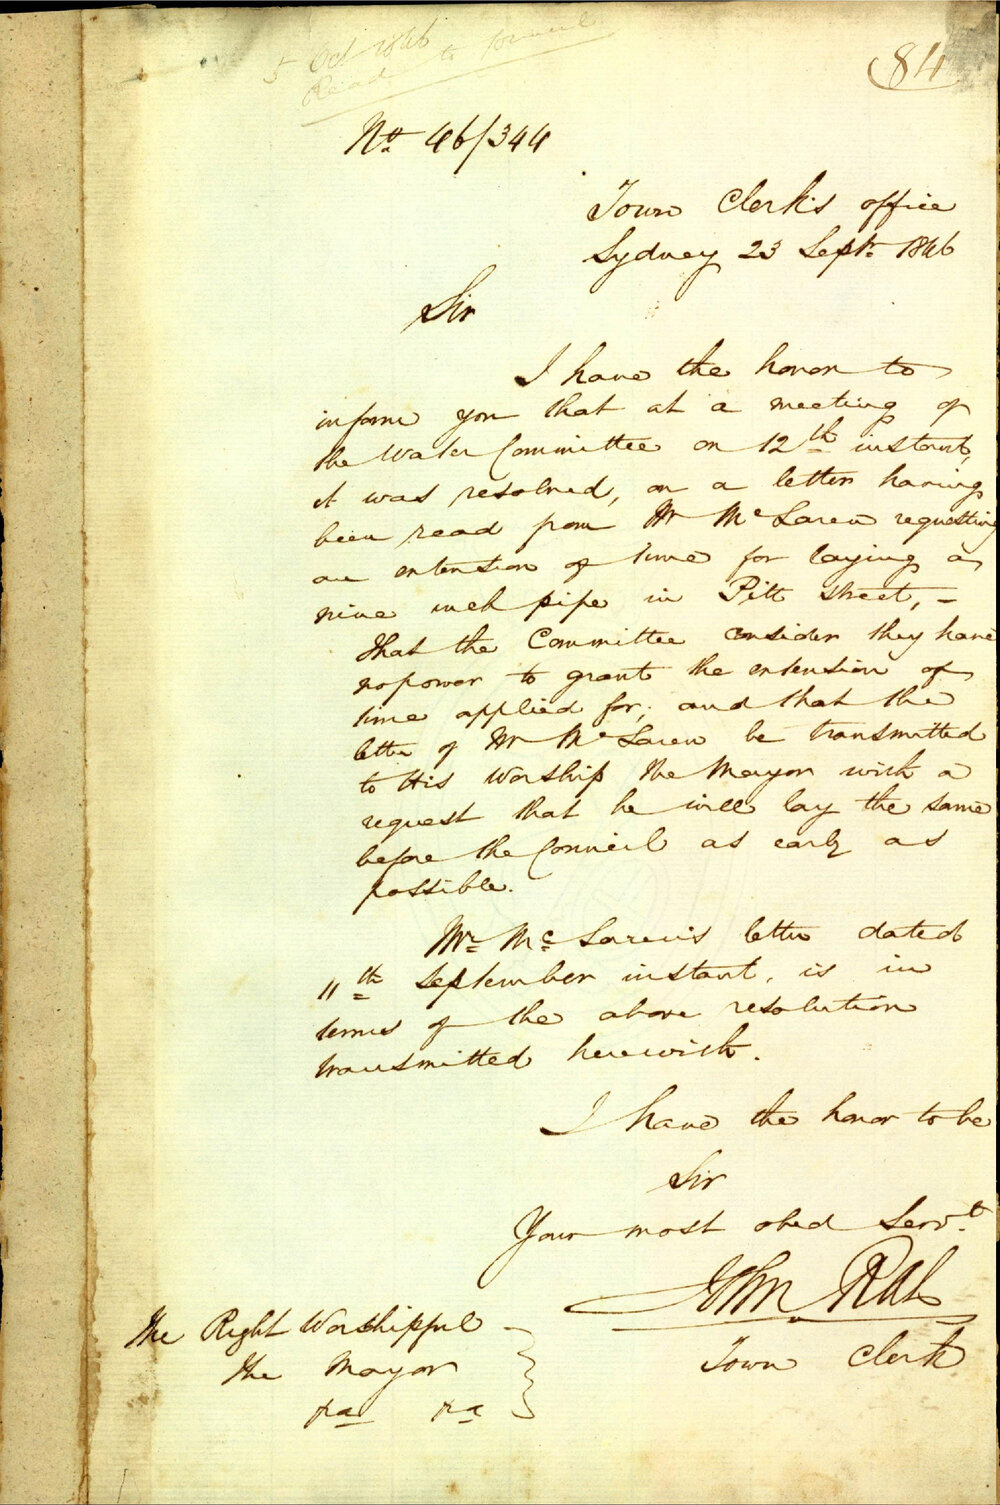 5 Oct 1846
Read to Council
84
No. 46/344
Town Clerk's office
Sydney 23 Septr. 1846
Sir
I have the honor to
inform you that at a meeting of
the Water Committee on 12th instant,
it was resolved, on a letter having
been read from Mr McLaren requesting
an extension of time for laying a
nine inch pipe in Pitt Street, –
That the Committee consider they have
no power to grant the extension of
time applied for; and that the
letter of Mr McLaren be transmitted
to His Worship the Mayor with a
request that he will lay the same
before the Council as early as
possible.
Mr. Mc.Laren's letter dated
11th September instant, is in
terms of the above resolution
transmitted herewith.
I have the honor to be
Sir
Your most obed Servt.
John Rae
Town Clerk
The Right Worshipful
the Mayor
&a &a